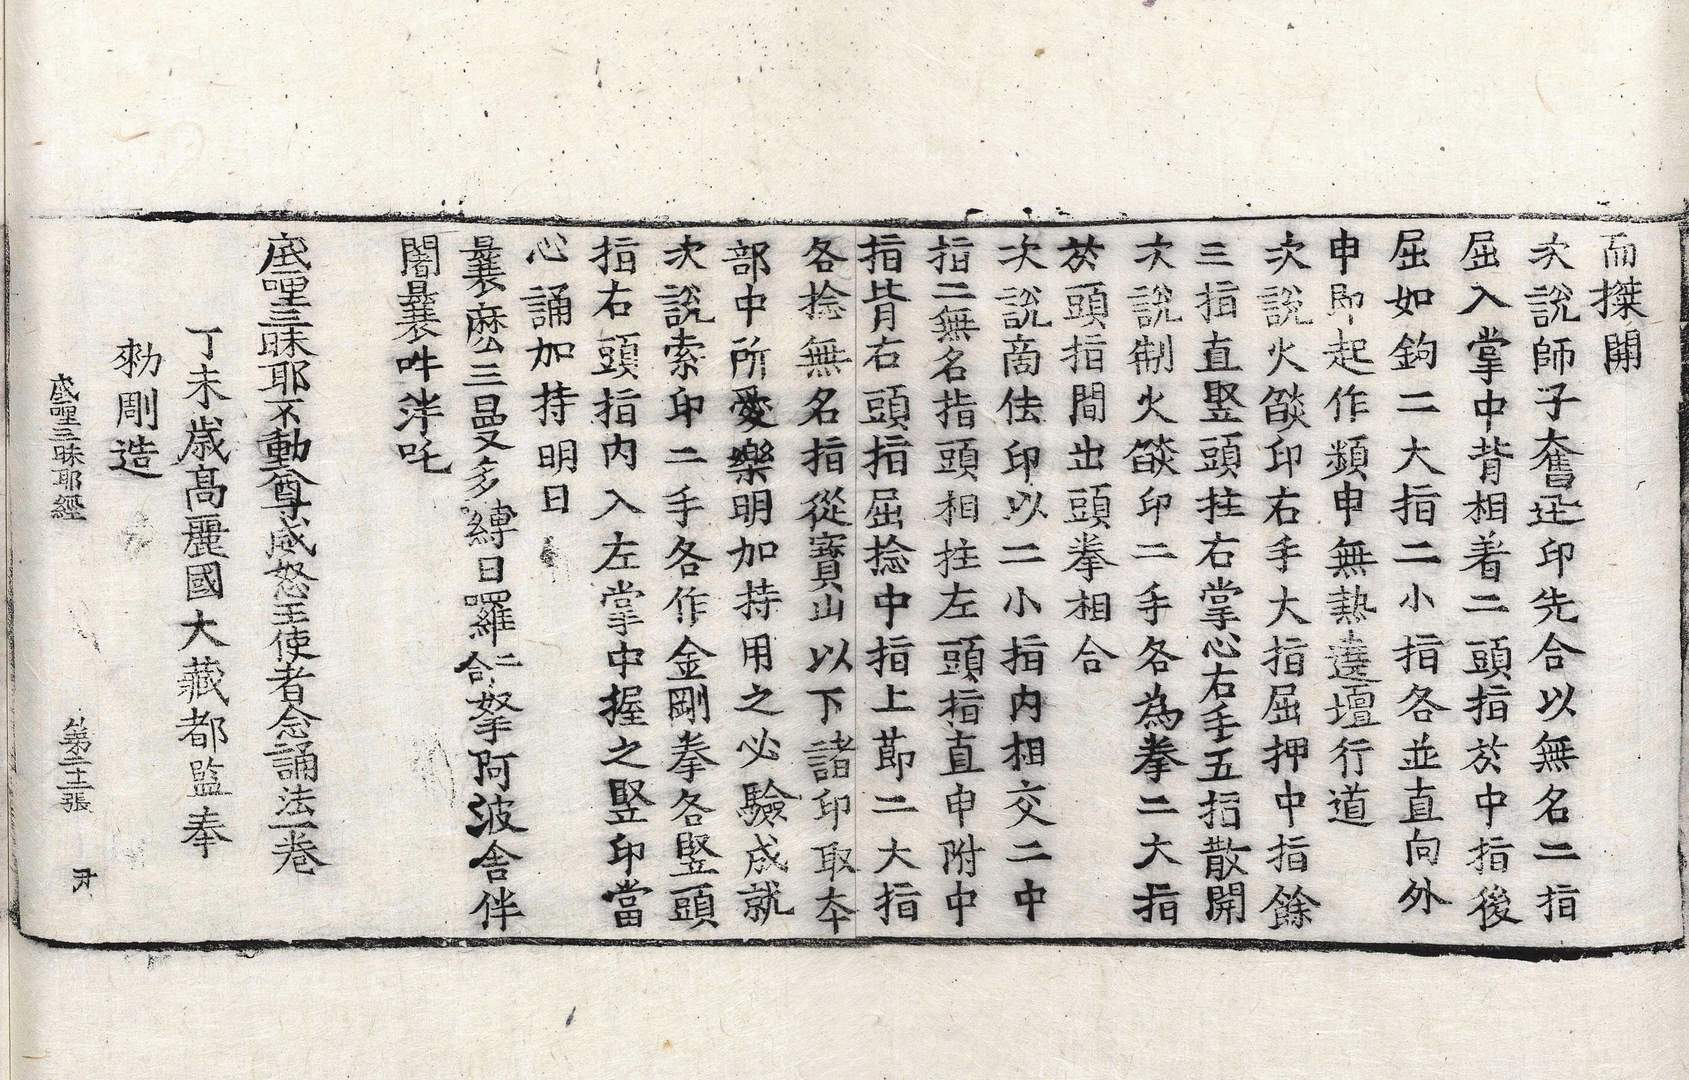 而搩開
次說師子奮迅印先合以無名二指
屈入掌中背相着二頭指於中指後
屈如鉤二大指二小指各並直向外
申即起作頻申無熱遶壇行道
次說火燄印右手大指屈押中指餘
三指直竪頭拄右掌心右手五指散開
次說制火燄印二手各為拳二大指
於頭指間出頭拳相合
次說商佉印以二小指內相交二中
指二無名指頭相拄左頭指直申附中
指背右頭指屈捻中指上節二大指
各捻無名指從寶山以下諸印取本
部中所愛樂明加持用之必驗成就
次說索印二手各作金剛拳各竪頭
指右頭指內入左掌中握之竪印當
心誦加持明曰
曩麽三曼多嚩日囉二合拏阿波舍伴
闍曩吽泮吒
底哩三昧耶不動尊威怒王使者念誦法一卷
丁未歲高麗國大藏都監奉
勑彫造
底哩三昧耶經 第二十二張 尹